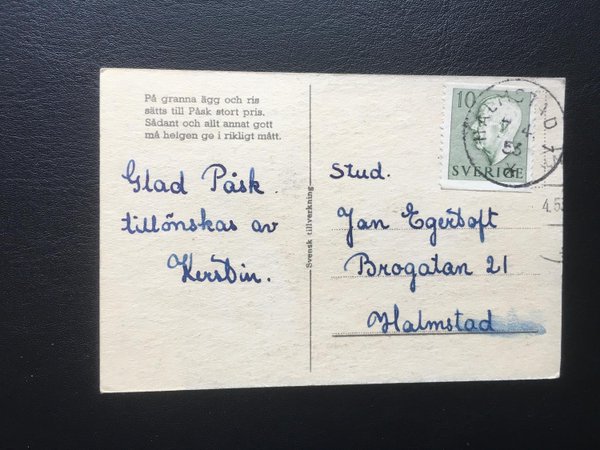 På granna ägg och ris
sätts till Påsk stort pris.
Sådant och allt annat gott
må helgen ge i rikligt mått.
Glad Påsk
tillönskas av
Kerstin.
Svensk tillverkning
10
SVERIGE
HALMSTAD 1
4
53
4.53
Stud.
Jan Egertoft
Brogatan 21
Halmstad